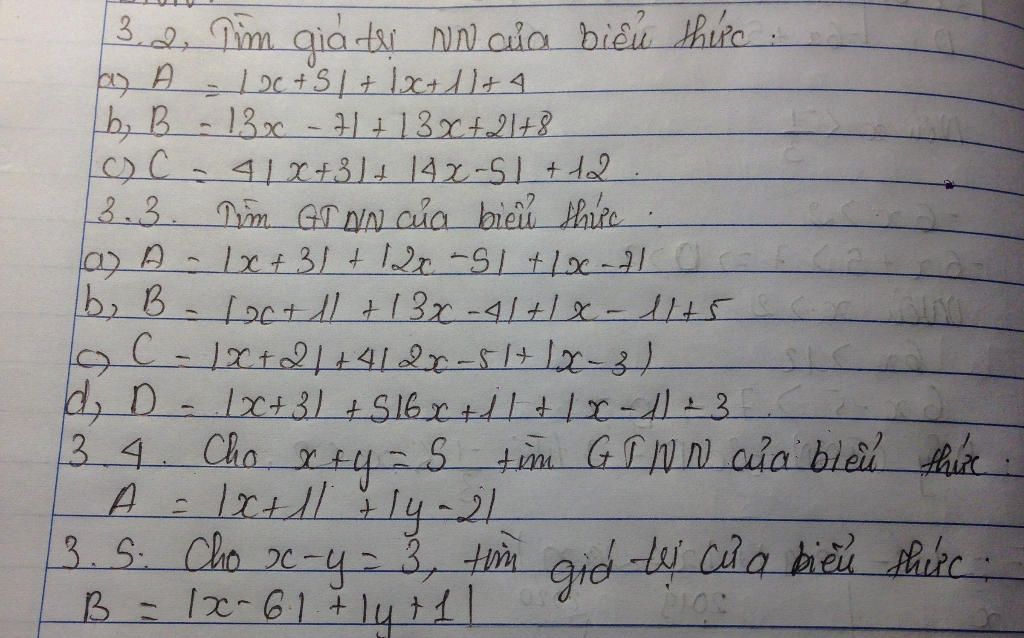 3.2, Tìm giá trị NN của biểu thức :
a) A = |x+5| + |x+1| + 4
b, B = |3x - 7| + |3x+2| + 8
c) C = 4|x+3| + |4x-5| + 12.
3.3. Tìm GTNN của biểu thức.
a) A = |x+3| + |2x - 5| + |x - 7|
b, B = |x+1| + |3x - 4| + |x - 1| + 5
c) C = |x+2| + 4|2x - 5| + |x - 3|
d, D = |x+3| + 5|6x+1| + |x - 1| + 3
3.4. Cho x+y = 5 tìm GTNN của biểu thức :
A = |x+1| + |y - 2|
3.5: Cho x-y = 3, tìm giá trị của biểu thức :
B = |x - 6| + |y+1|